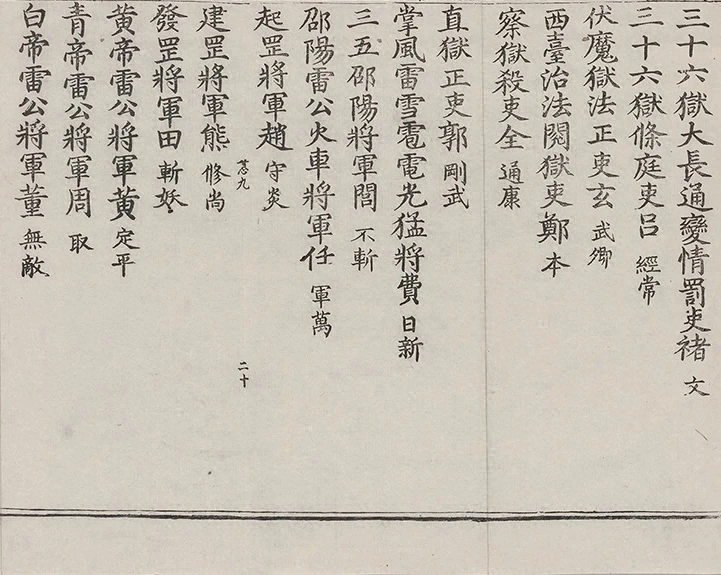 三十六獄大長通變情罰吏褚文
三十六獄條庭吏呂經常
伏魔獄法正吏玄武卿
西臺治法閱獄吏鄭本
察獄殺吏全通康
直獄正吏郭剛武
掌風雷雪雹電光猛將費日新
三五邵陽將軍閻不斬
邵陽雷公火車將軍任軍萬
起罡將軍趙守炎
二十
建罡將軍熊修尚
發罡將軍田斬妖
黃帝雷公將軍黃定平
青帝雷公將軍周取
白帝雷公將軍董無敵